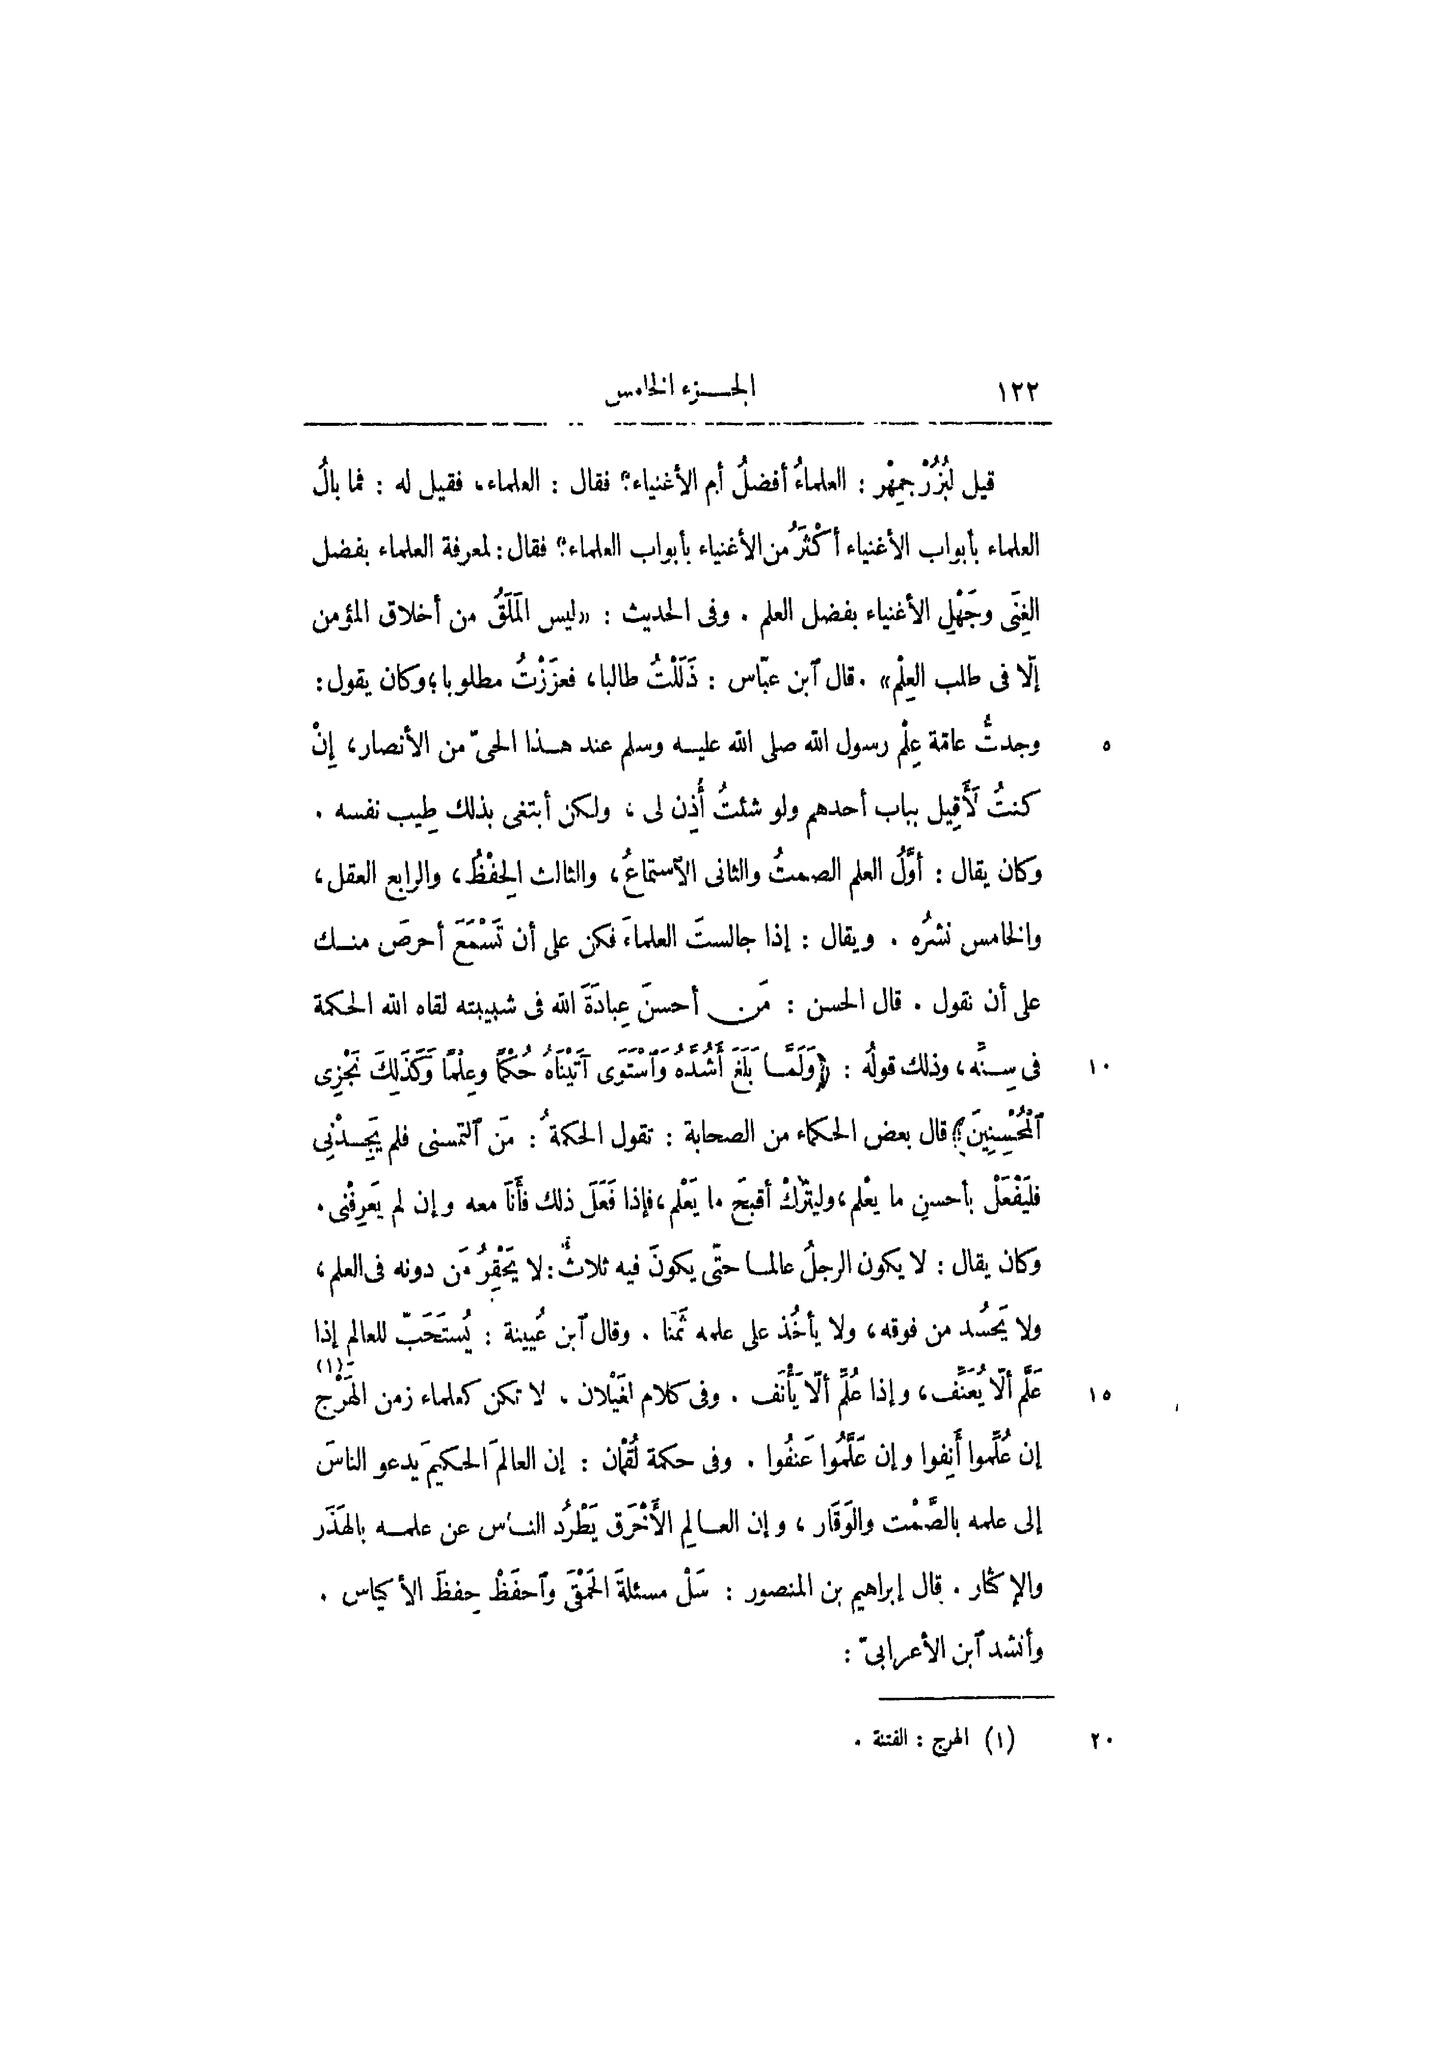 ١٢٢ الجـــزء الخامس
قيل لبُزُرْجمِهْر : العلماءُ أفضلُ أم الأغنياء؟ فقال : العلماء، فقيل له : فما بالُ
العلماء بأبواب الأغنياء أكْثَرُ من الأغنياء بأبواب العلماء؟ فقال : لمعرفة العلماء بفضل
الغِنَى وجَهْلِ الأغنياء بفضل العلم . وفى الحديث : «ليس المَلَقُ من أخلاق المؤمن
إلّا فى طلب العِلْم» . قال ٱبن عبّاس : ذَلَلْتُ طالبا، فعزَزْتُ مطلوبا؛ وكان يقول :
٥ وجدتُّ عامّة عِلْم رسول الله صلى الله عليــه وسلم عند هــذا الحىّ من الأنصار، إنْ
كنتُ لَأَقِيل بباب أحدهم ولو شئتُ أُذِن لى ، ولكن أبتغى بذلك طِيب نفسه .
وكان يقال : أوَّلُ العلم الصمتُ والثانى الٱستماعُ، والثالث الحِفْظُ، والرابع العقل،
والخامس نشرُه . ويقال : إذا جالستَ العلماءَ فكن على أن تَسْمَعَ أحرصَ منــك
على أن تقول . قال الحسن : مَن أحسنَ عِبادَةَ الله فى شبيبته لقاه الله الحكمة
١٠ فى سِــنِّه، وذلك قولُه : ﴿وَلَمَّــا بَلَغَ أَشُدَّهُ وَٱسْتَوَى آتَيْنَاهُ حُكْمًا وعِلْمًا وَكَذَلِكَ نَجْزِى
ٱلْمُحْسِنِينَ﴾ قال بعض الحكماء من الصحابة : تقول الحكمةُ : مَن ٱلتمسنى فلم يَجِــدْنِى
فليَفْعَلْ بأحسنِ ما يعْلم، وليترُكْ أقبحَ ما يَعْلم، فإذا فَعَلَ ذلك فأَنَا معه و إن لم يَعرِفْنى .
وكان يقال : لا يكون الرجلُ عالمــا حتّى يكونَ فيه ثلاثٌ : لا يَحْقِرُ مَن دونه فى العلم ،
ولا يَحسُد من فوقه، ولا يأخُذ على علمه ثَمنا . وقال ٱبن عُيينة : يُستَحَبّ للعالم إذا
١٥ عَلَّم ألّا يُعَنِّف، و إذا عُلِّم ألّا يَأْنَف . وفى كلام لغَيْلان . لا تكن كعلماء زمن الهَرْج (١)
إن عُلِّموا أَنِفوا و إن عَلَّمُوا عَنفُوا . وفى حكمة لُقْمان : إن العالمَ الحكيمَ يدعو الناسَ
إلى علمه بالصَّمْت والوَقَار ، و إن العــالِم الأَخْرَق يَطْرُد النــاس عن علمــه بالهَذَر
والإكثار . قال إبراهيم بن المنصور : سَلْ مسئلةَ الحَمْقَى وٱحفَظْ حِفظَ الأكياس .
وأنشد ٱبن الأعرابىّ :
٢٠ (١) الهرج : الفتنة .